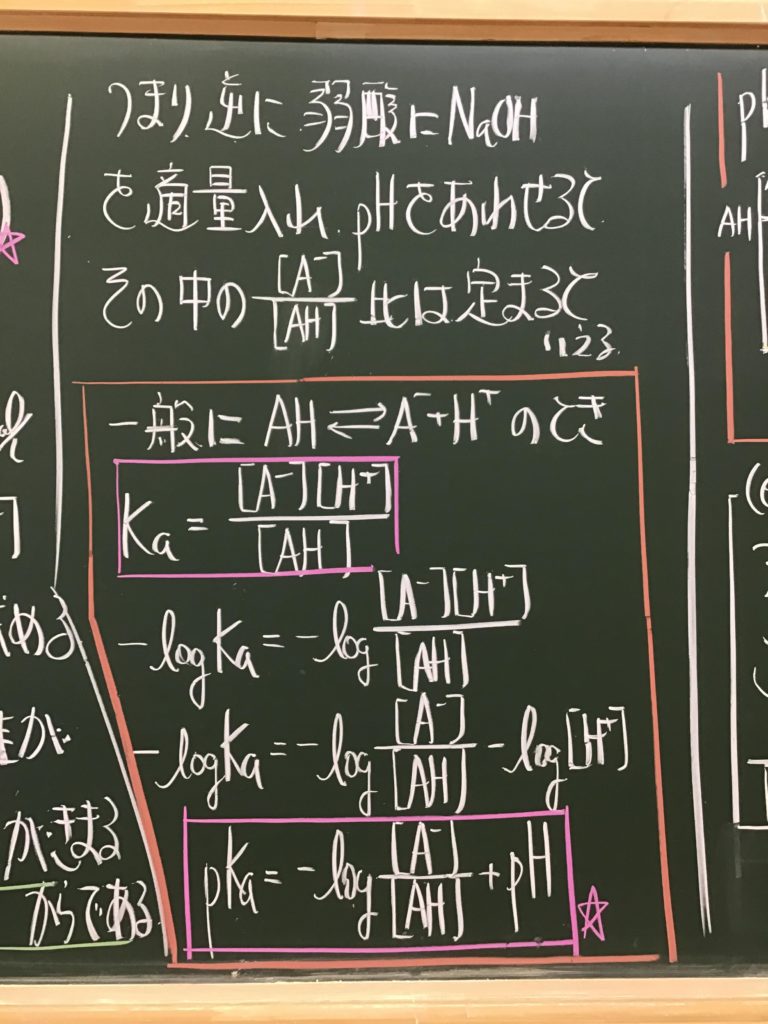 つまり逆に弱酸にNaOH
を適量入れ pHをあわせると
その中の [A⁻]/[AH] 比は定まると
いえる
一般に AH ⇄ A⁻+H⁺ のとき
Ka = [A⁻][H⁺]/[AH]
-log Ka = -log [A⁻][H⁺]/[AH]
-log Ka = -log [A⁻]/[AH] - log [H⁺]
pKa = -log [A⁻]/[AH] + pH ☆
☆
める
が
がきまる
からである
p
AH